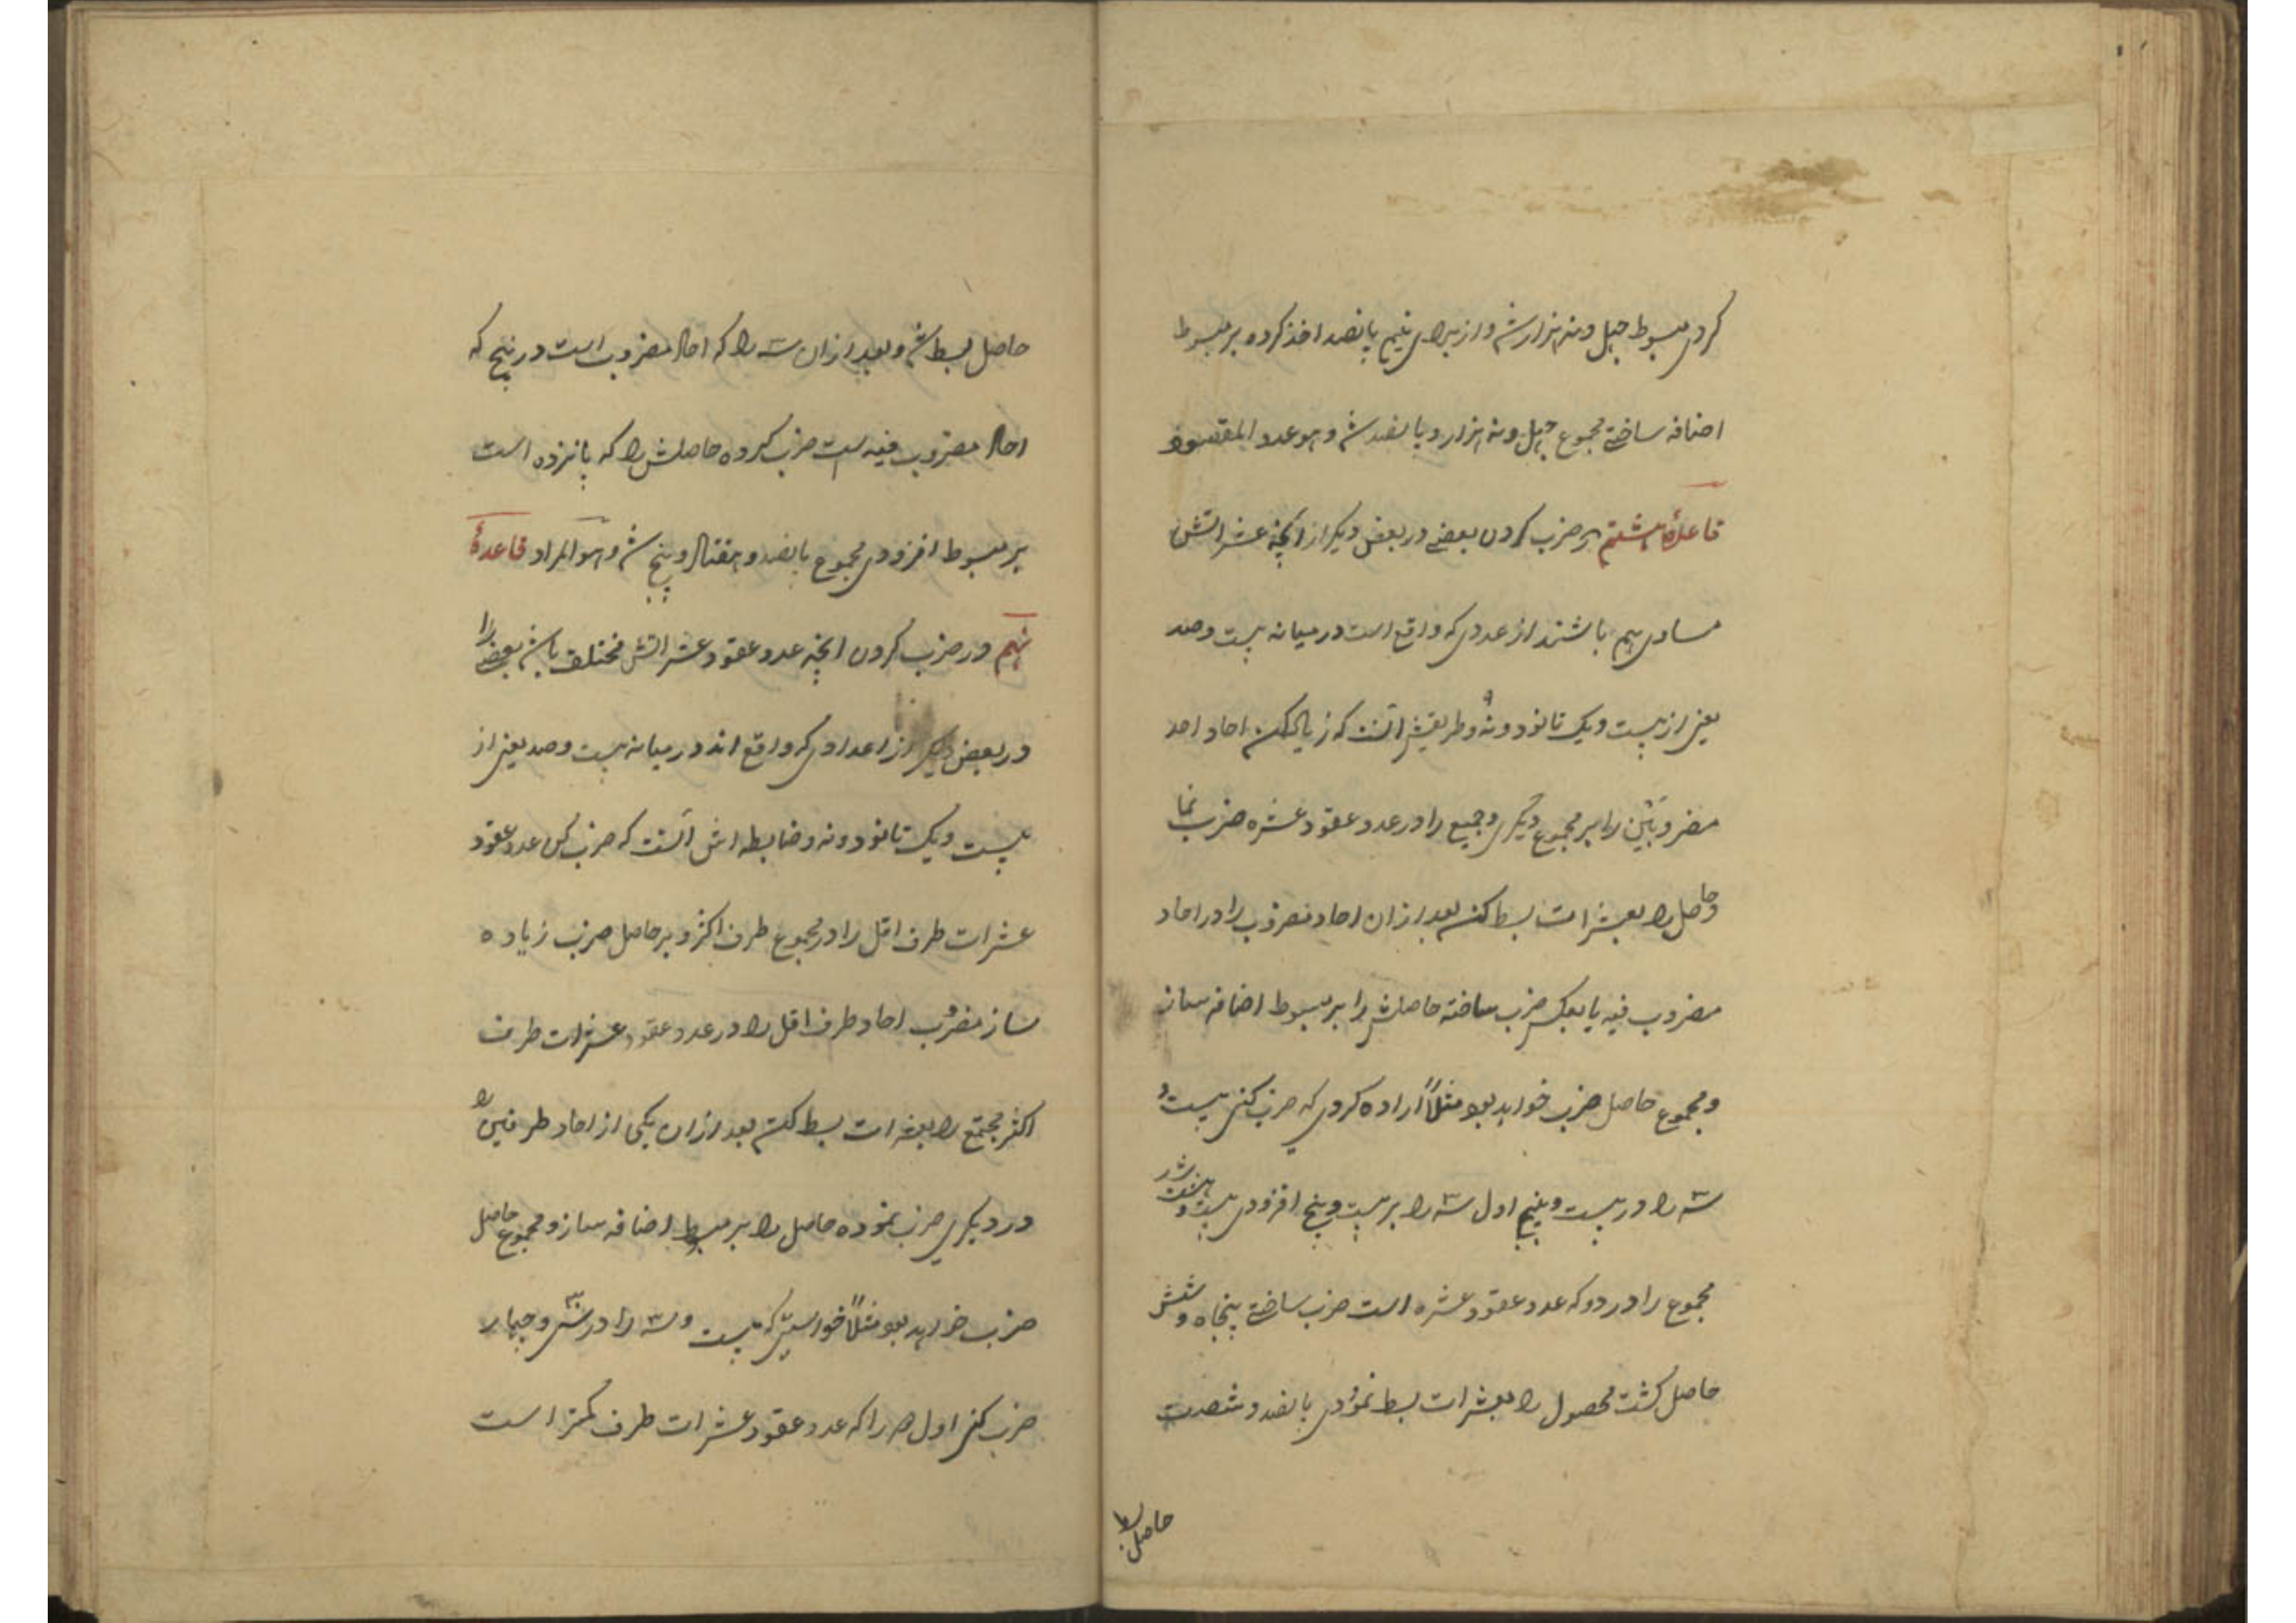 کردی مبسوط چهل و نه هزار شد و از برای نیم پانصد اخذ کرده بر مبسوط
اضافه ساختی مجموع چهل و نه هزار و پانصد شد و هو عدد المقصود
قاعدهٔ هشتم در ضرب کردن بعضی در بعض دیگر از آنچه عشراتش
مساوی هم باشند از عددی که واقع است در میانه بیست و صد
یعنی از بیست و یک تا نود و نه و طریقش آنست که زیاد کن احاد احد
مضروبین را بر مجموع دیگری و جمیع را در عدد عقود عشره ضرب نما
و حاصل را بعشرات بسط کن بعد از آن احاد مضروب را در احاد
مضروب فیه یا بعکس ضرب ساخته حاصلش را بر مبسوط اضافه ساز
و مجموع حاصل ضرب خواهد بود مثلاً اراده کردی که ضرب کنی بیست و
سه را در بیست و پنج اول سه را بر بیست و پنج افزودی بیست و هشت شد
مجموع را در دو که عدد عقود عشره است ضرب ساختی پنجاه و شش
حاصل گشت محصول را بعشرات بسط نمودی پانصد و شصت
حاصل بسط
حاصل بسط شد و بعد از آن سه را که احاد مضروب است در پنج که
احاد مضروب فیه است ضرب کرده حاصلش را که پانزده است
بر مبسوط افزودی مجموع پانصد و هفتاد و پنج شد و هو المراد قاعدهٔ
نهم در ضرب کردن آنچه عدد عقود عشراتش مختلف باشد بعضی را
در بعض دیگر از اعدادی که واقع اند در میانه بیست و صد یعنی از
بیست و یک تا نود و نه و ضابطه اش آنست که ضرب کن عدد عقود
عشرات طرف اقل را در مجموع طرف اکثر و بر حاصل ضرب زیاده
ساز مضروب احاد طرف اقل را در عدد عقود عشرات طرف
اکثر مجتمع را بعشرات بسط کن بعد از آن یکی از احاد طرفین را
در دیگری ضرب نموده حاصل را بر مبسوط اضافه ساز و مجموع حاصل
ضرب خواهد بود مثلاً خواستی که بیست و سه را در سی و چهار
ضرب کنی اول را که عدد عقود عشرات طرف کمتر است